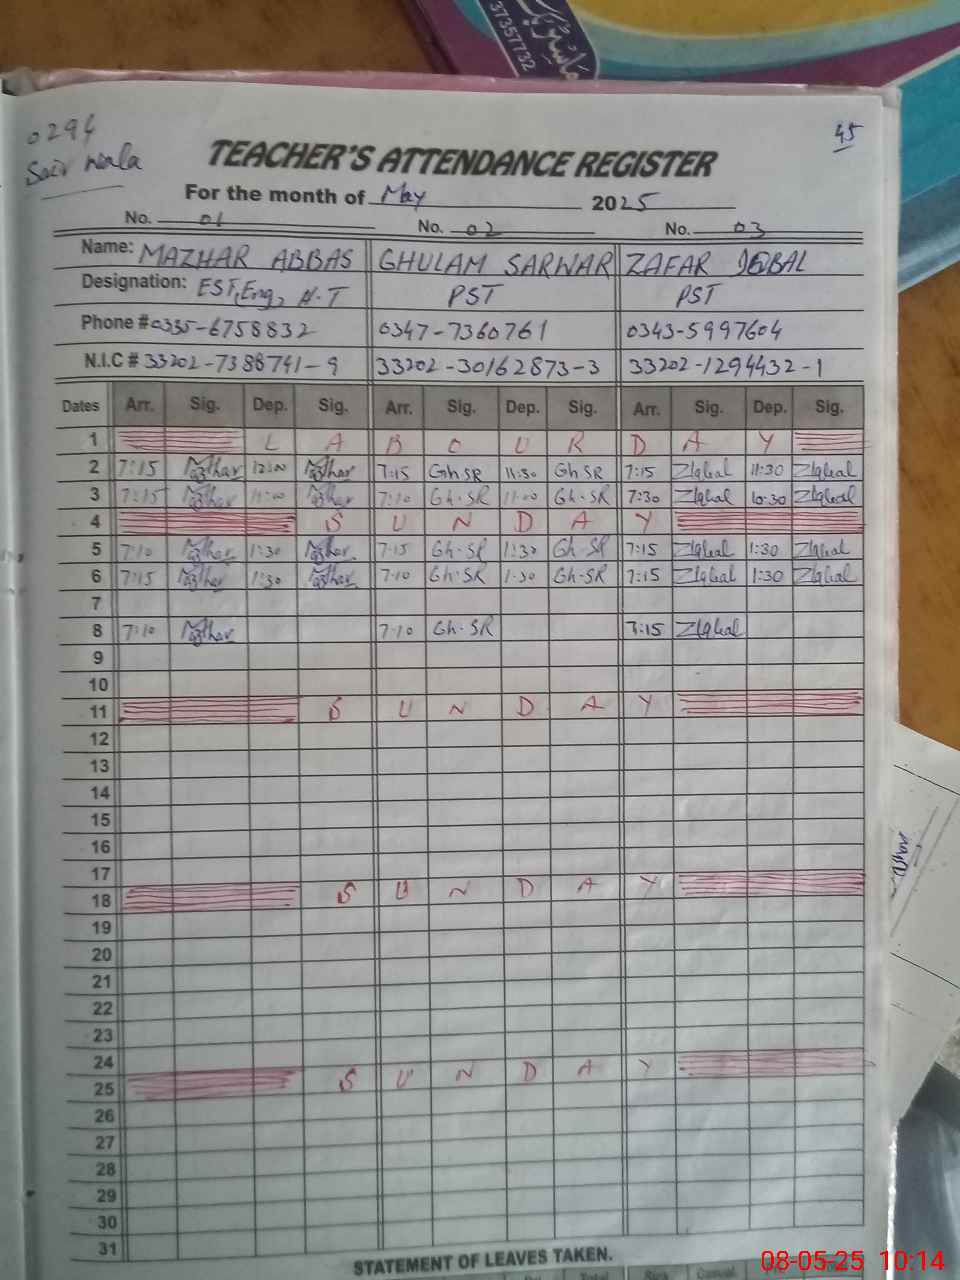 37357732
0294
45
Sair wala
TEACHER'S ATTENDANCE REGISTER
For the month of May 2025
No. 01 No. 02 No. 03
Name: MAZHAR ABBAS GHULAM SARWAR ZAFAR IQBAL
Designation: EST, Eng, H.T PST PST
Phone # 0335-6758832 0347-7360761 0343-5997604
N.I.C # 33202-7388741-9 33202-30162873-3 33202-1294432-1
Dates Arr. Sig. Dep. Sig. Arr. Sig. Dep. Sig. Arr. Sig. Dep. Sig.
1 L A B O U R D A Y
2 7:15 Mazhar 12:00 Mazhar 7:15 Gh SR 11:30 Gh SR 7:15 ZIqbal 11:30 ZIqbal
3 7:15 Mazhar 11:00 Mazhar 7:10 Gh.SR 11:00 Gh.SR 7:30 ZIqbal 10:30 ZIqbal
4 S U N D A Y
5 7:10 Mazhar 1:30 Mazhar 7:15 Gh.SR 1:30 Gh-SR 7:15 ZIqbal 1:30 ZIqbal
6 7:15 Mazhar 1:30 Mazhar 7:10 Gh.SR 1:30 Gh-SR 7:15 ZIqbal 1:30 ZIqbal
7
8 7:10 Mazhar 7:10 Gh.SR 7:15 ZIqbal
9
10
11 S U N D A Y
12
13
14
15
16
17
18 S U N D A Y
19
20
21
22
23
24
25 S U N D A Y
26
27
28
29
30
31
STATEMENT OF LEAVES TAKEN.
08-05-25 10:14